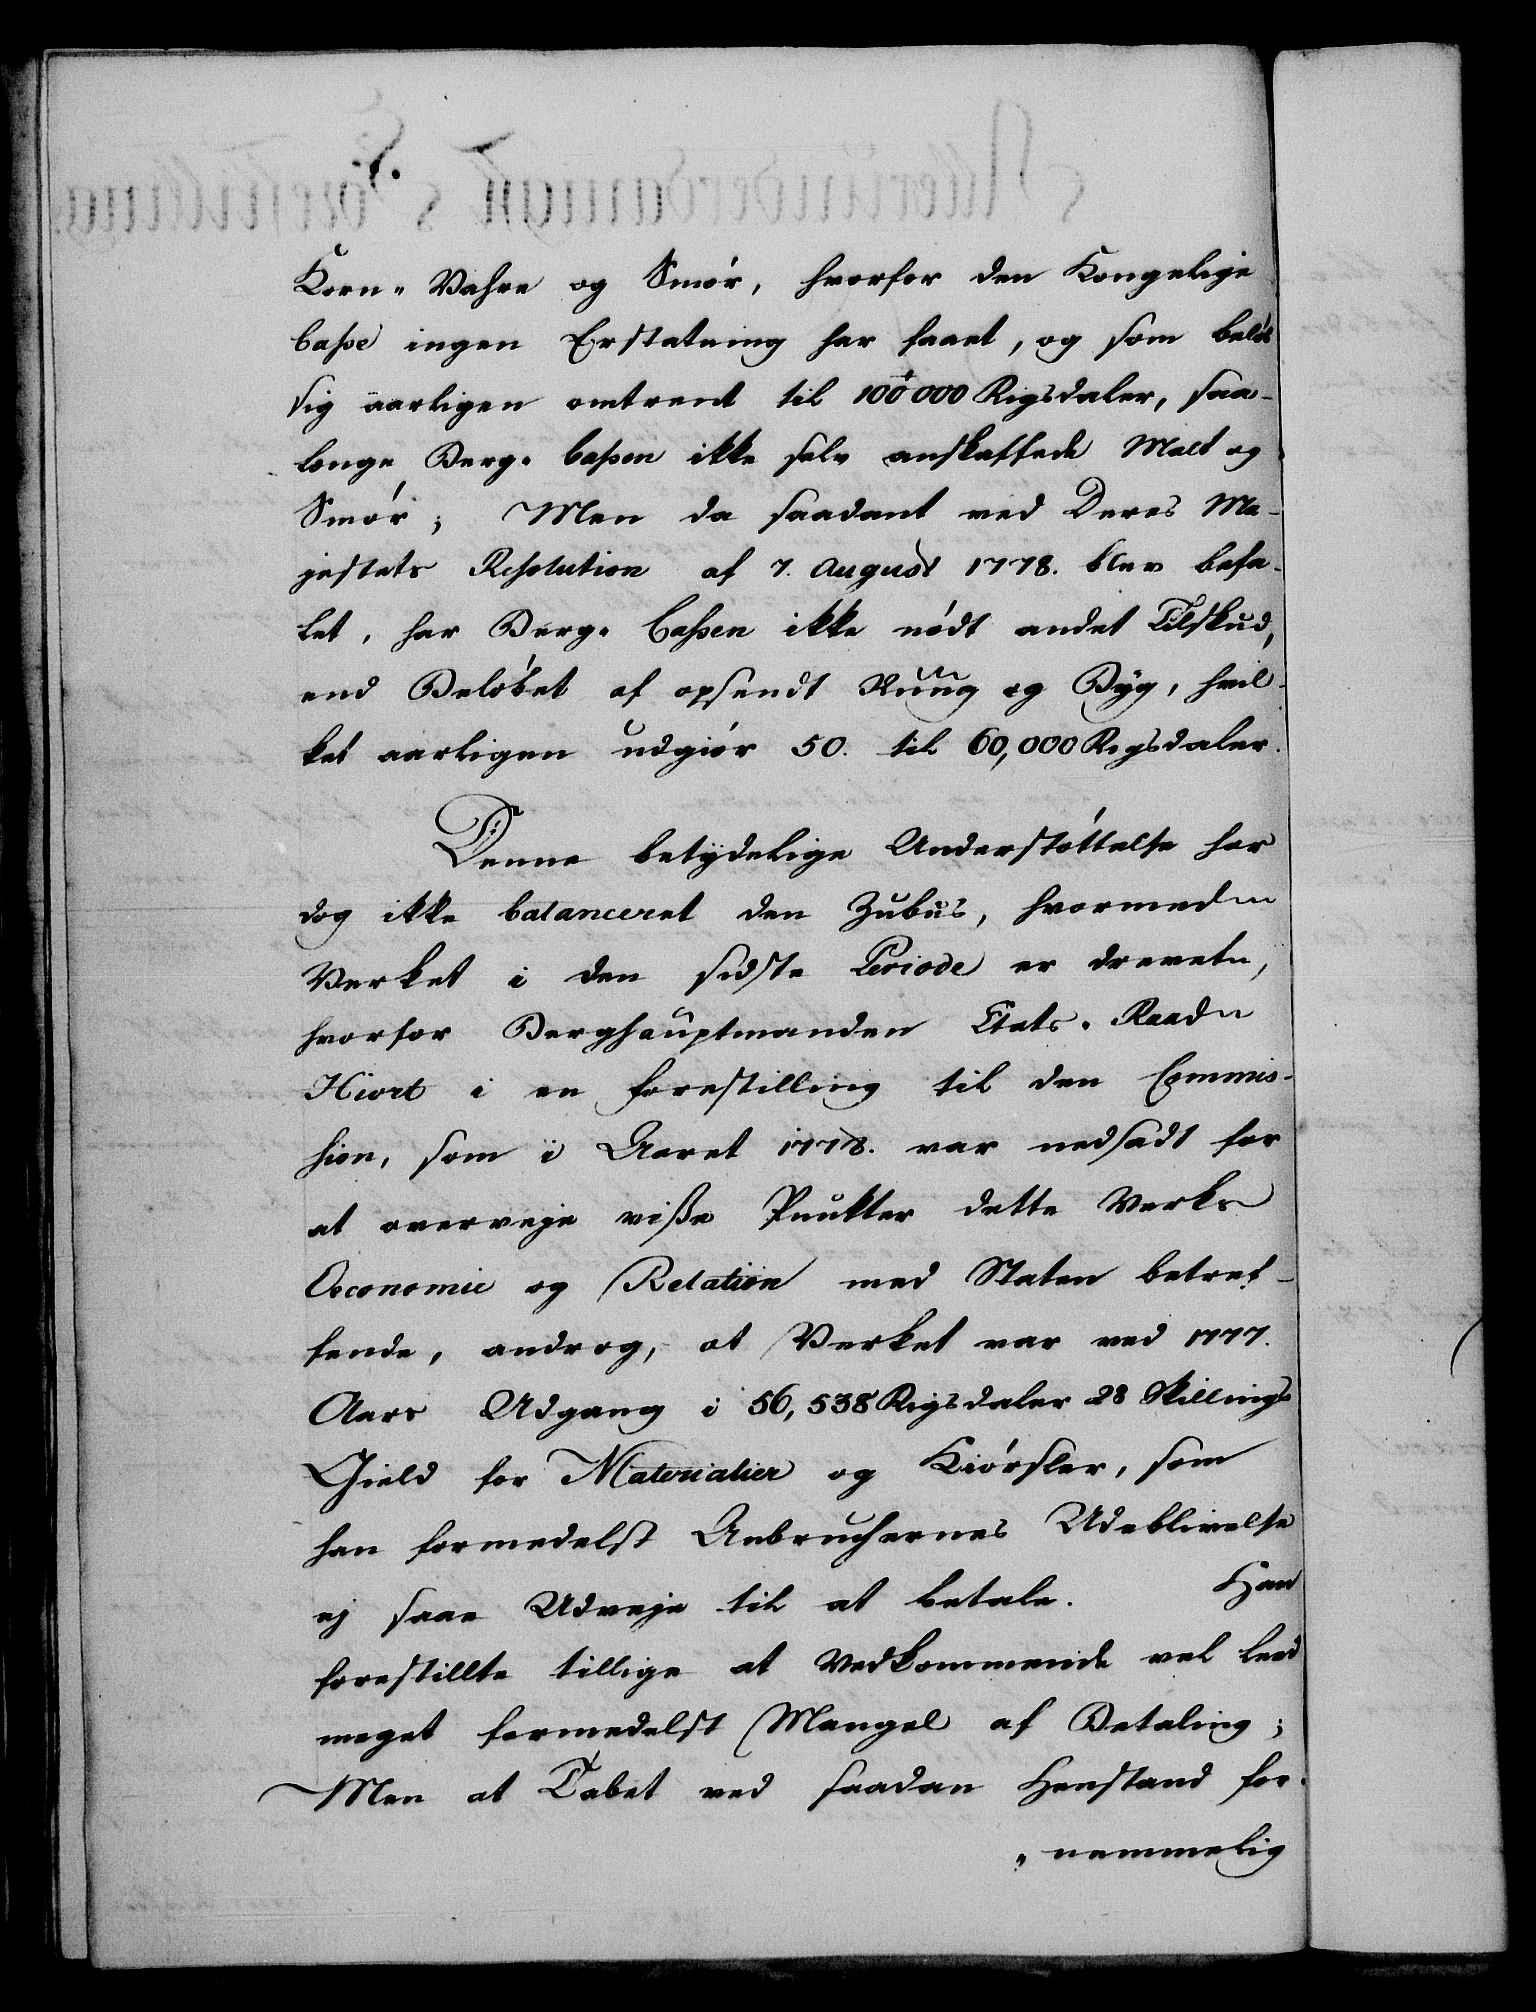 Korn- Vahre og Smør, hvorfor den Kongelige
Casse ingen Erstatning har faaet, og som beløb
sig aarligen omtrent til 100000 Rigsdaler, saa-
længe Berg- Cassen ikke selv anskaffede Malt og
Smør; Men da saadant ved Deres Ma-
jestæts Resolution af 7. August 1778. blev befa-
let, har Berg- Cassen ikke nødt andet Tilskud,
end Beløbet af opsendt Ruug og Byg, hvil-
ket aarligen udgiør 50. til 60,000 Rigsdaler.
Denne betydelige Understøttelse har
dog ikke balanceret den Zubus, hvormed
Verket i den sidste Periode er drevet,
hvorfor Berghauptmanden Etats- Raad
Hiort i en forestilling til den Commis-
sion, som i Aaret 1778. var nedsadt for
at overveje visse Puncter dette Verks
Oeconomie og Relation med Staten betref-
fende, androg, at Verket var ved 1777.
Aars Udgang i 56,538 Rigsdaler 28 Skillings
Gield for Materialier og Kiørsler, som
han formedelst Anbruchernes Udeblivelse
ej saae Udveje til at betale. Han
forestillte tillige at Vedkommende vel leed
meget formedelst Mangel af Betaling;
Men at Tabet ved saadan Henstand for-
nemmelig